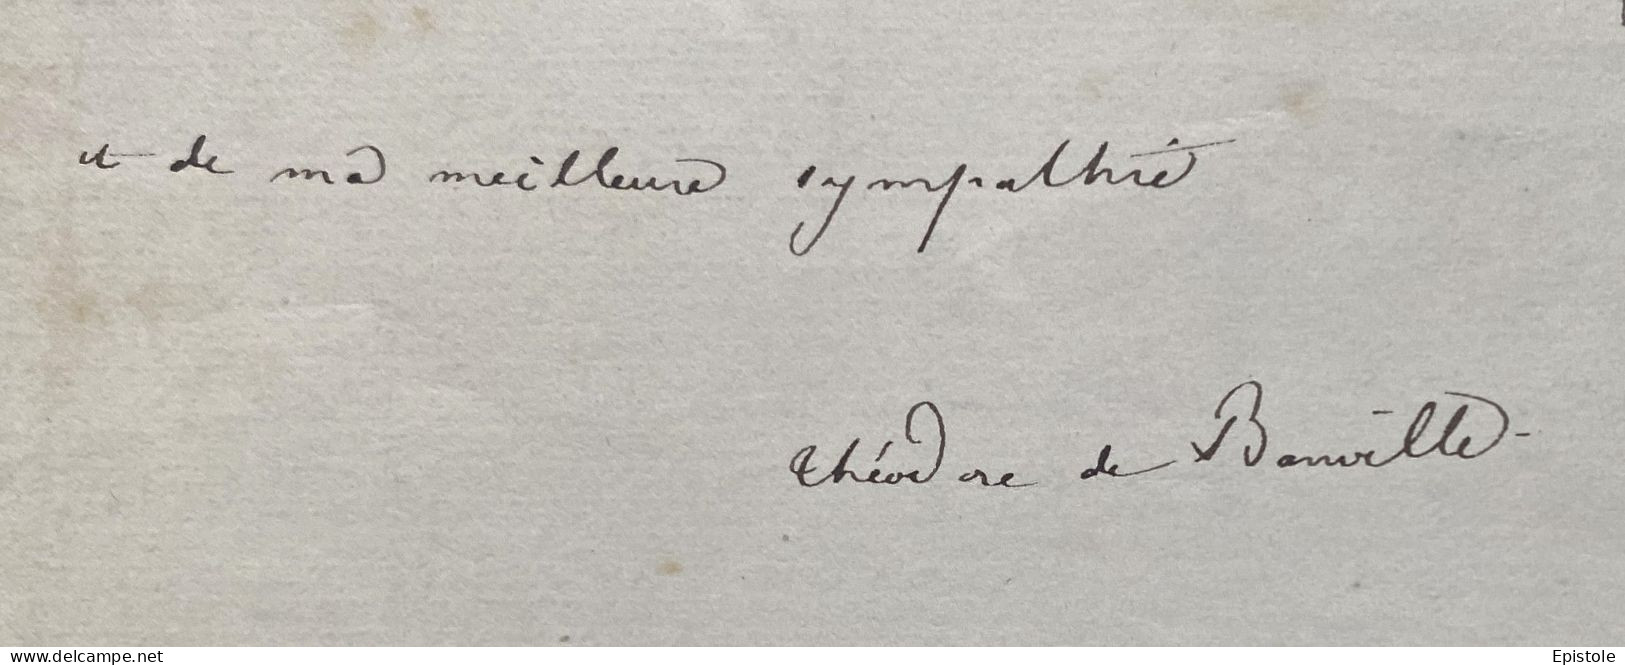 et de ma meilleure sympathie
Théodore de Banville
www.delcampe.net Epistole